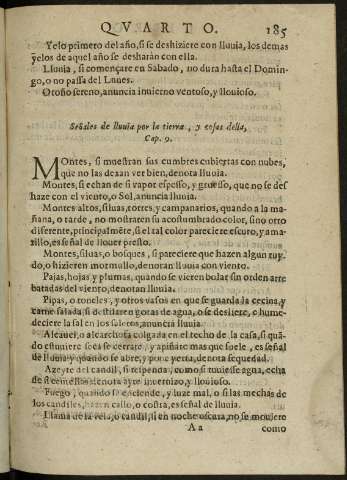 QVARTO. 185
Yelo primero del año, si se deshiziere con lluuia, los demas
yelos de aquel año se desharàn con ella.
Lluuia, si començare en Sabado, no dura hasta el Domin-
go, o no passa del Lunes.
Otoño sereno, anuncia inuierno ventoso, y llouioso.
Señales de lluuia por la tierra, y cosas della,
Cap. 9.
Montes, si muestran sus cumbres cubiertas con nubes,
que no las dexan ver bien, denota lluuia.
Montes, si echan de si vapor espesso, y gruesso, que no se des
haze con el viento, o Sol, anuncia lluuia.
Montes altos, siluas, torres, y campanarios, quando a la ma-
ñana, o tarde, no mostraren su acostumbrado color, sino otro
diferente, principalmẽte, si el tal color pareciere escuro, y ama
rillo, es señal de llouer presto.
Montes, siluas, o bosques, si pareciere que hazen algun ruy
do, o hizieren mormullo, denotan lluuia con viento.
Pajas, hojas y plumas, quando se vieren bular sin orden arre
batadas del viento, denotan lluuia.
Pipas, o toneles, y otros vasos en que se guarda la cecina, y
carne salada, si destilaren gotas de agua, o se desliere, o hume-
deciere la sal en los saleros, anuncia lluuia.
colgada en el techo de la casa, si quã-
do estuuiere seca se cerrare, y apiñare mas que suele, es señal
de lluuia, y quando se abre, y pone yerta, denota sequedad.
Azeyte del candil, si respenda, como si tuuiesse agua, echa
de si centellas denota ayre inuernizo, y llouioso.
Fuego, quando se enciende, y luze mal, o si las mechas de
los candiles, hazen callo, o costra, es señal de lluuia.
Llama de la vela, o candil, si en noche oscura, no se mouiere
Aa como